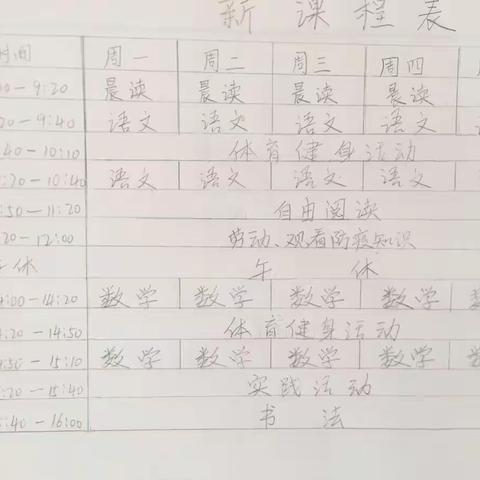 新课程表
时间 周一 周二 周三 周四
00-9:20 晨读 晨读 晨读 晨读
20-9:40 语文 语文 语文 语文
:40-10:10 体育健身活动
:20-10:40 语文 语文 语文 语文
:50-11:20 自由阅读
:20-12:00 劳动、观看防疫知识
午休 午休
4:00-14:20 数学 数学 数学 数学
4:20-14:50 体育健身活动
4:50-15:10 数学 数学 数学 数学
:20-15:40 实践活动
5:40-16:00 书法